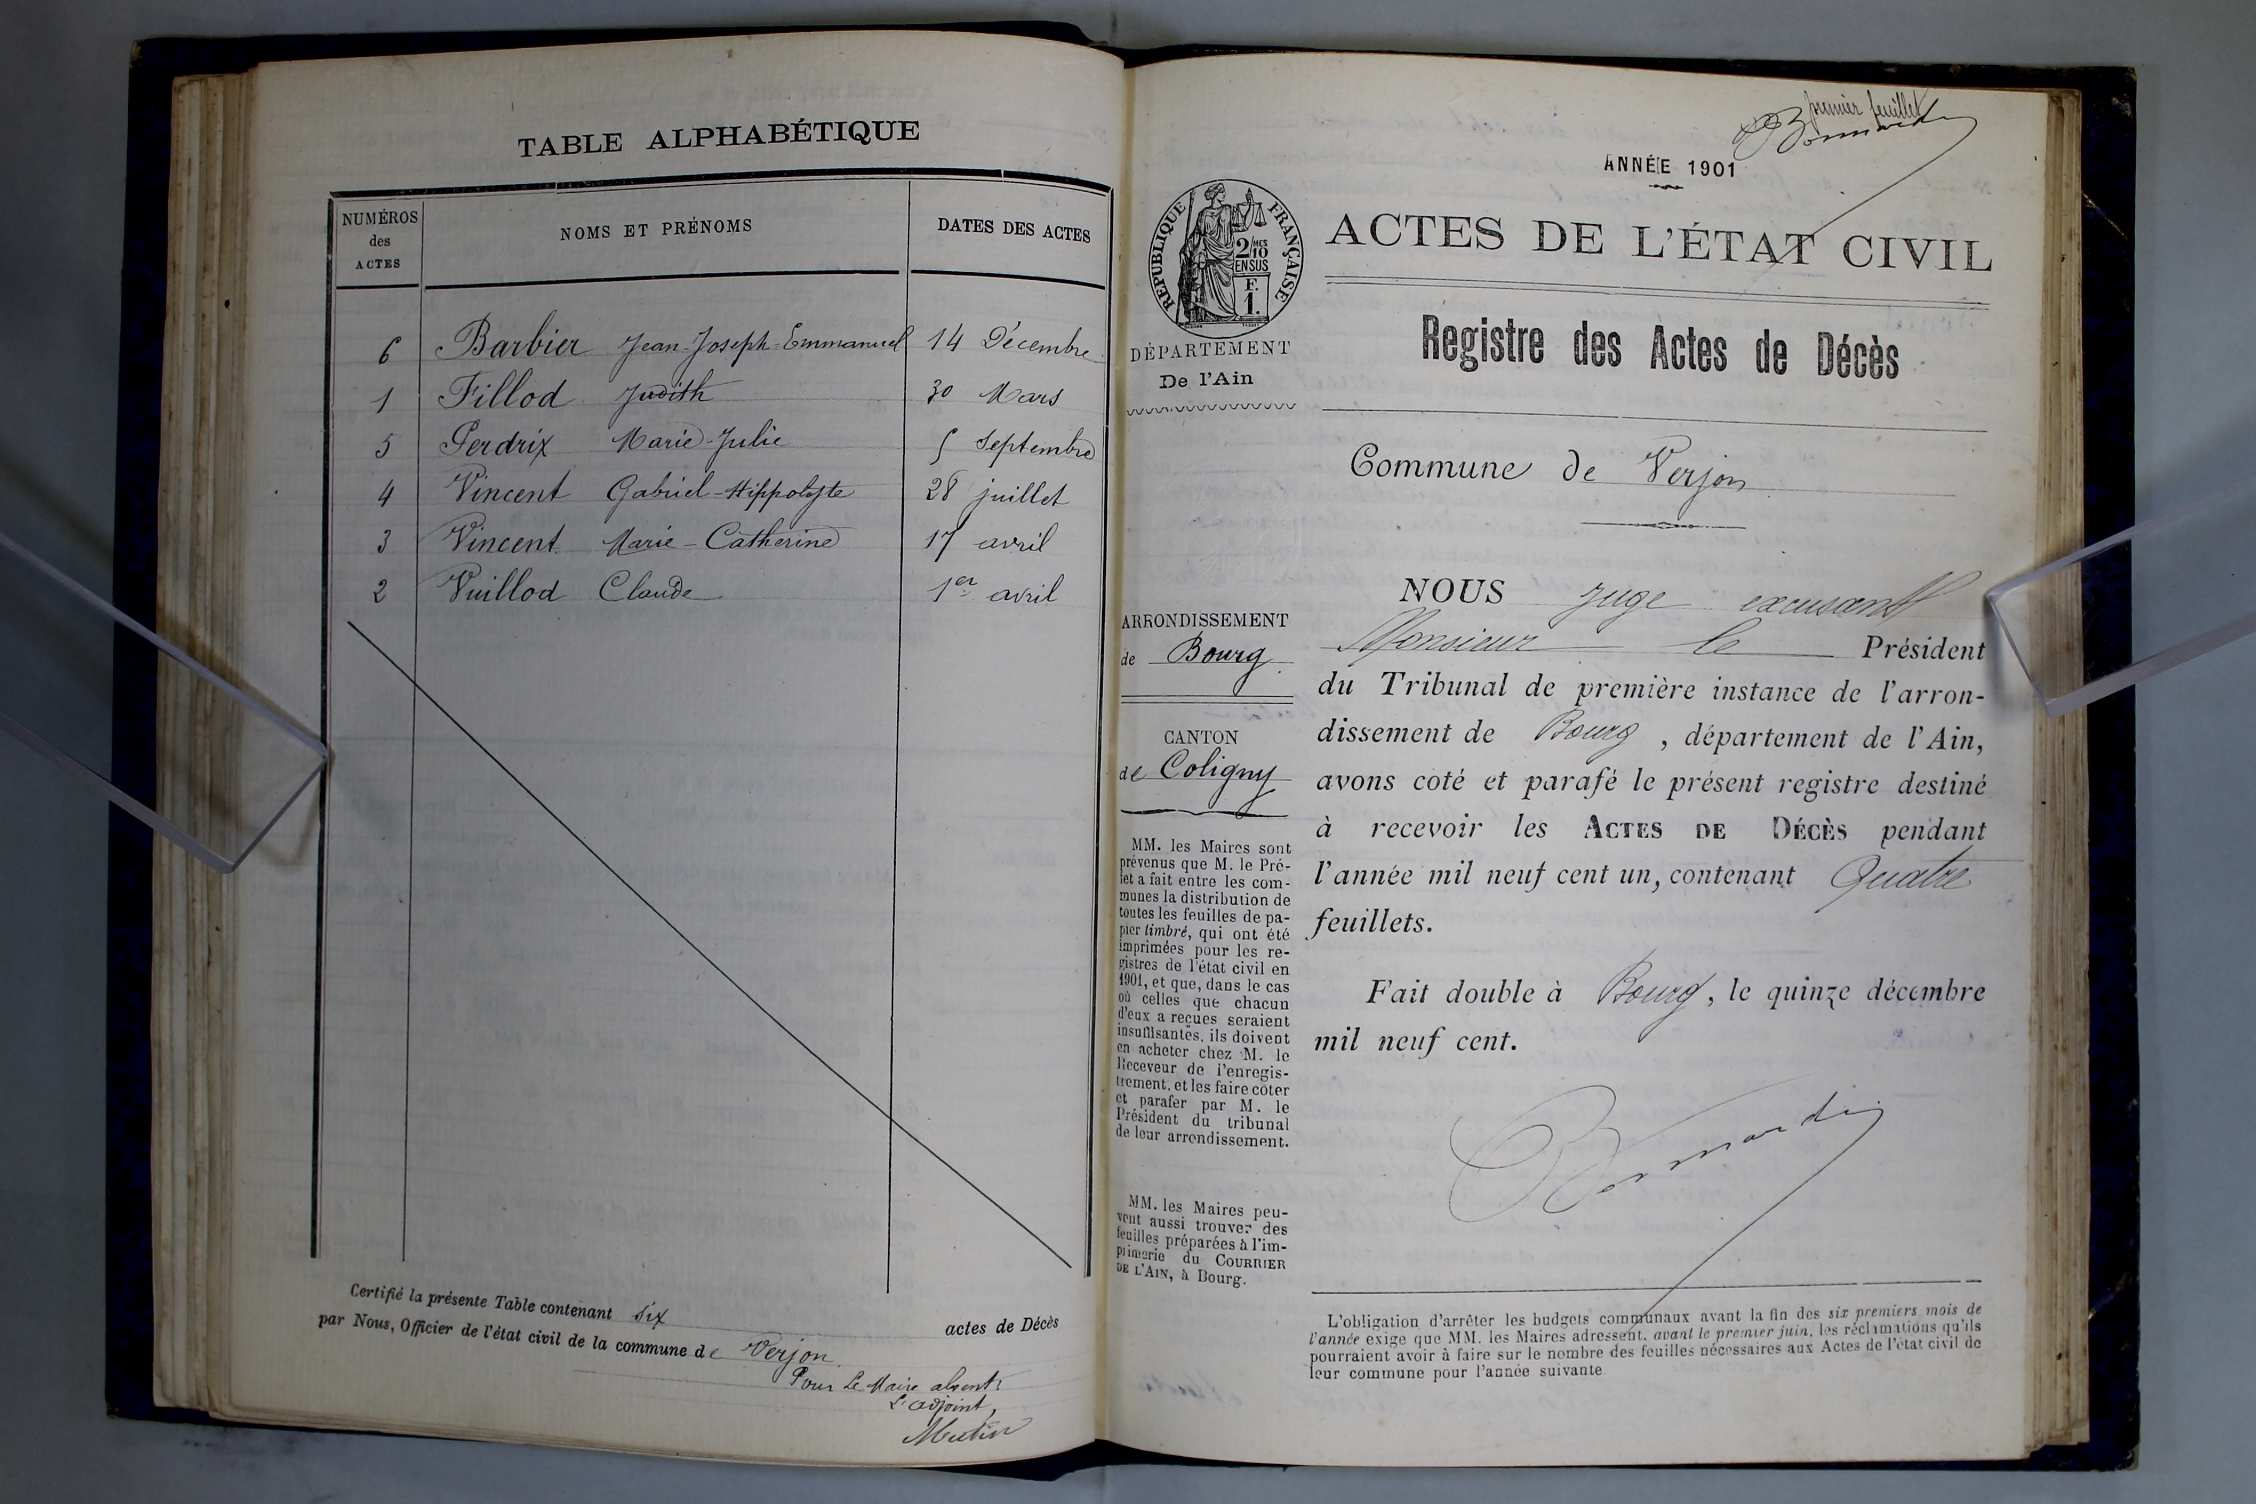 TABLE ALPHABÉTIQUE
NUMÉROS
des
ACTES
NOMS ET PRÉNOMS
DATES DES ACTES
6 Barbier Jean-Joseph-Emmanuel 14 Décembre
1 Fillod Judith 30 Mars
5 Perdrix Marie-Julie 5 Septembre
4 Vincent Gabriel-Hippolyte 28 juillet
3 Vincent Marie-Catherine 17 avril
2 Vuillod Claude 1er avril
Certifié la présente Table contenant six actes de Décès
par Nous, Officier de l'état civil de la commune de Verjon
Pour Le Maire absent
L'adjoint,
premier feuillet
ANNÉE 1901
RÉPUBLIQUE FRANÇAISE
2/10
MES
EN SUS
F.
1.
ACTES DE L'ÉTAT CIVIL
Registre des Actes de Décès
DÉPARTEMENT
De l'Ain
Commune de Verjon
ARRONDISSEMENT
de Bourg
CANTON
de Coligny
MM. les Maires sont
prévenus que M. le Pré-
fet a fait entre les com-
munes la distribution de
toutes les feuilles de pa-
pier timbré, qui ont été
imprimées pour les re-
gistres de l'état civil en
1901, et que, dans le cas
où celles que chacun
d'eux a reçues seraient
insuffisantes, ils doivent
en acheter chez M. le
Receveur de l'enregis-
trement, et les faire coter
et parafer par M. le
Président du tribunal
de leur arrondissement.
MM. les Maires peu-
vent aussi trouver des
feuilles préparées à l'im-
primerie du COURRIER
DE L'AIN, à Bourg.
NOUS Juge excusant
Monsieur le Président
du Tribunal de première instance de l'arron-
dissement de Bourg, département de l'Ain,
avons coté et parafé le présent registre destiné
à recevoir les ACTES DE DÉCÈS pendant
l'année mil neuf cent un, contenant Quatre
feuillets.
Fait double à Bourg, le quinze décembre
mil neuf cent.
L'obligation d'arrêter les budgets communaux avant la fin des six premiers mois de
l'année exige que MM. les Maires adressent, avant le premier juin, les réclamations qu'ils
pourraient avoir à faire sur le nombre des feuilles nécessaires aux Actes de l'état civil de
leur commune pour l'année suivante